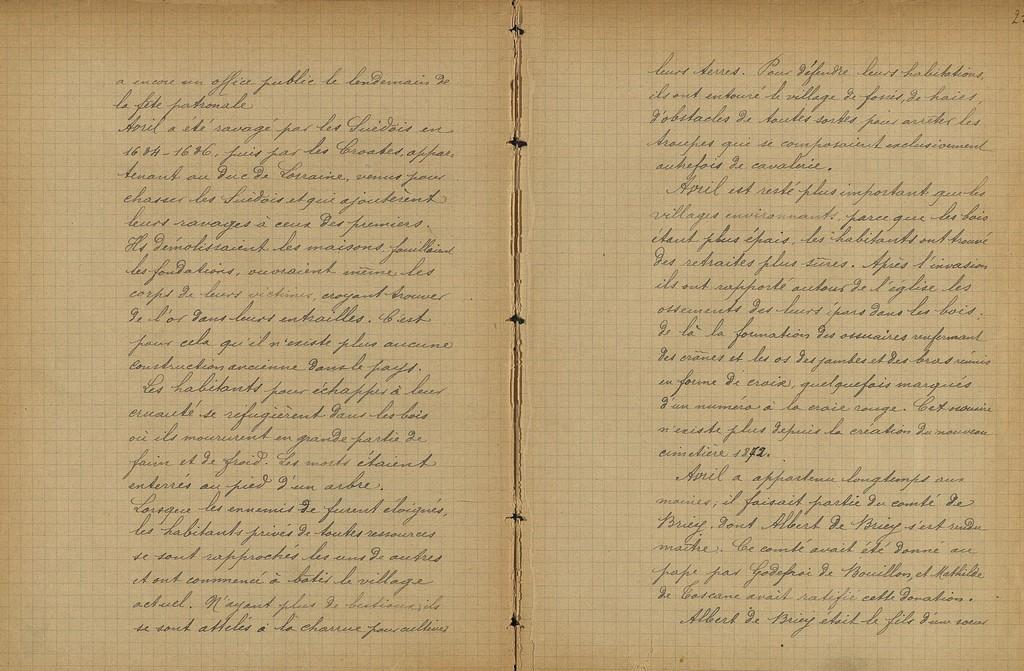 a encore un office public le lendemain de
la fête patronale
Avril a été ravagé par les Suédois en
1634-1636, puis par les Croates, appar-
tenant au Duc de Lorraine, venus pour
chasser les Suédois et qui ajoutèrent
leurs ravages à ceux des premiers.
Ils démolissaient les maisons, fouillaient
les fondations, ouvraient même les
corps de leurs victimes, croyant trouver
de l'or dans leurs entrailles. C'est
pour cela qu'il n'existe plus aucune
construction ancienne dans le pays.
Les habitants pour échapper à leur
cruauté se réfugièrent dans les bois
où ils moururent en grande partie de
faim et de froid. Les morts étaient
enterrés au pied d'un arbre.
Lorsque les ennemis de furent éloignés,
les habitants privés de toutes ressources
se sont rapprochés les uns de autres
et ont commencé à bâtir le village
actuel. N'ayant plus de bestiaux, ils
se sont attelés à la charrue pour cultiver
2
leurs terres. Pour défendre leurs habitations,
ils ont entouré le village de fossés, de haies,
d'obstacles de toutes sortes pour arrêter les
troupes qui se composaient exclusivement
autrefois de cavalerie.
Avril est resté plus important que les
villages environnants, parce que les bois
étant plus épais, les habitants ont trouvé
des retraites plus sûres. Après l'invasion
ils ont rapporté autour de l'église les
ossements des leurs épars dans les bois.
de là la formation des ossuaires renfermant
des crânes et les os des jambes et des bras réunis
en forme de croix, quelquefois marqués
d'un numéro à la craie rouge. Cet ossuaire
n'existe plus depuis la création du nouveau
cimetière 1872.
Avril a appartenu longtemps aux
moines; il faisait partie du comté de
Briey, dont Albert de Briey s'est rendu
maître. Ce comté avait été donné au
pape par Godefroi de Bouillon, et Mathilde
de Toscane avait ratifié cette donation.
Albert de Briey était le fils d'une soeur